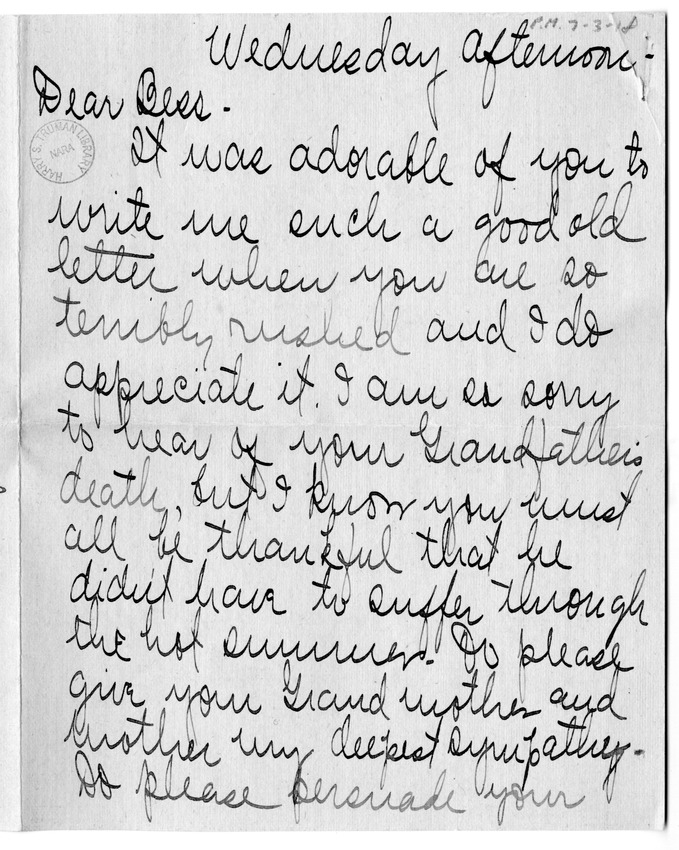 P.M. 7-3-18
Wednesday afternoon-
Dear Bess-
HARRY S. TRUMAN LIBRARY
NARA
It was adorable of you to
write me such a good old
letter when you are so
terribly rushed and I do
appreciate it. I am so sorry
to hear of your Grandfather's
death, but I know you must
all be thankful that he
didn't have to suffer through
the hot summer. Do please
give your Grandmother and
mother my deepest sympathy.
Do please persuade your